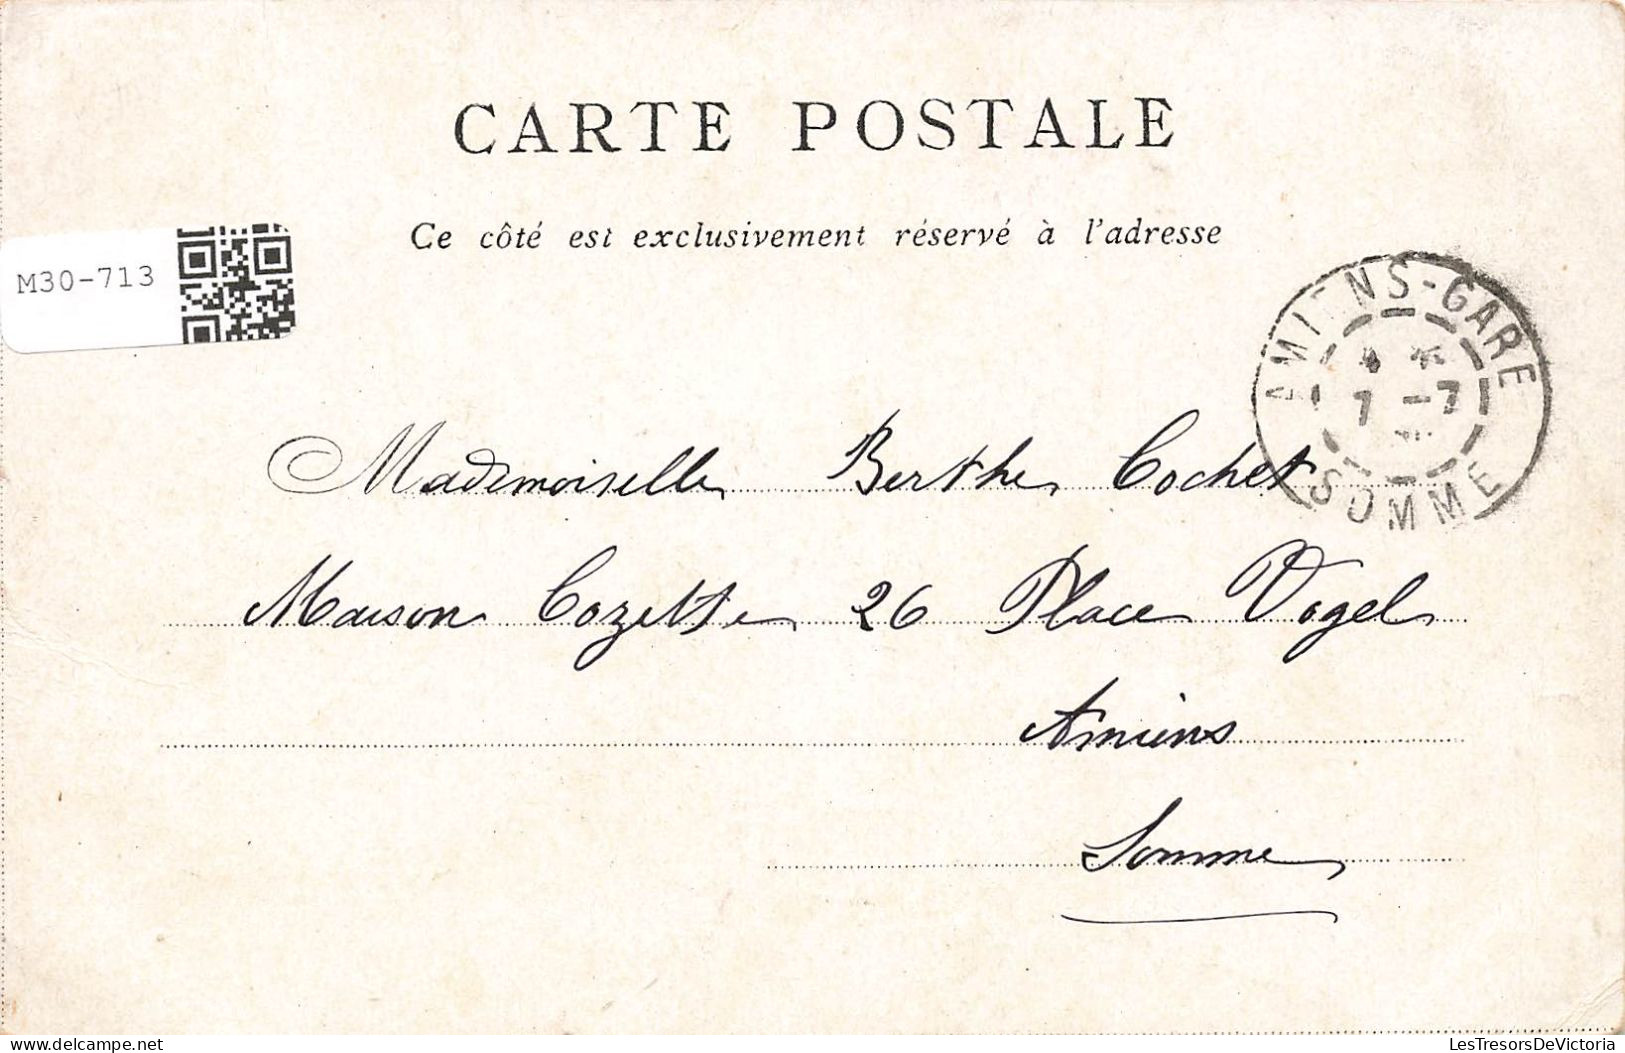 CARTE POSTALE
Ce côté est exclusivement réservé à l'adresse
M30-713
AMIENS-GARE
7 -7
SOMME
Mademoiselle Berthe Cochet
Maison Cozette 26 Place Vogel
Amiens
Somme
delcampe.net
LesTresorsDeVictoria